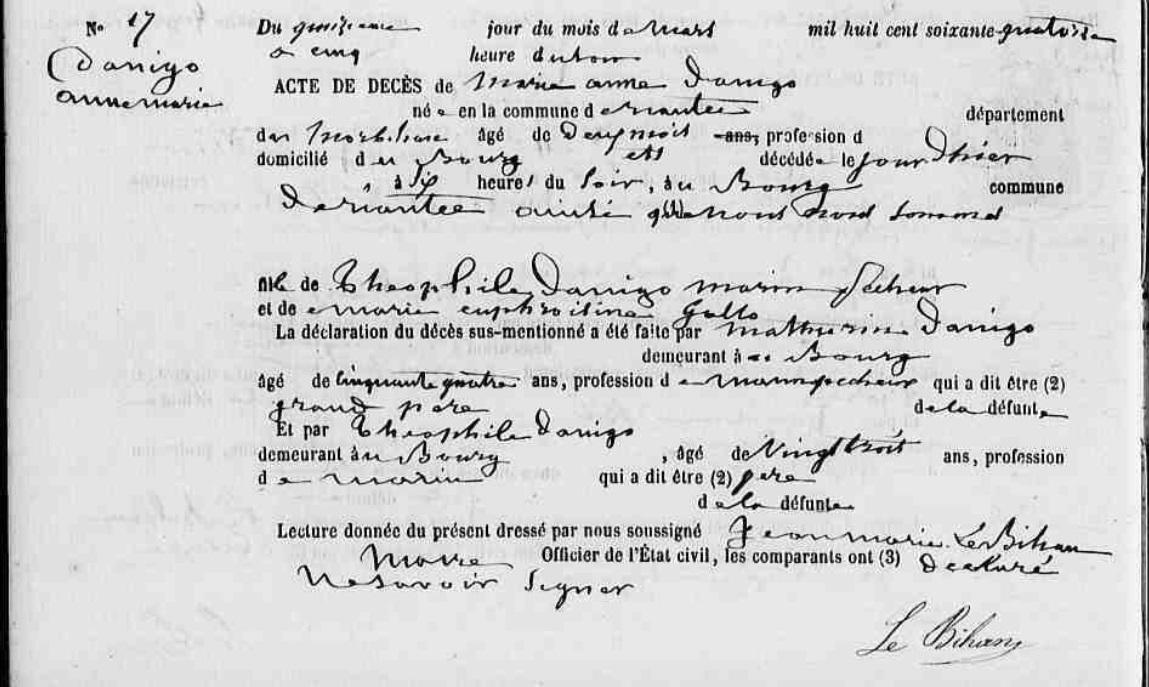 N° 17 Du quinzieme jour du mois de Mars mil huit cent soixante-quatorze
Danigo a cinq heure du soir
annemarie
ACTE DE DECÈS de Marie anne Danigo
né e en la commune de riantec département
du Morbihan âgé de Deux mois ans, profession d
domicilié d au Bourg et décédée le jour Dhier
à Six heures du Soir, au Bourg commune
De riantec ainsi que nous nous sommes
fille de Theophile Danigo marin pecheur
et de marie euphroisine Gallo
La déclaration du décès sus-mentionné a été faite par mathurin Danigo
demeurant à au Bourg
âgé de cinquante quatre ans, profession de marin pecheur qui a dit être (2)
grand pere de la défunte
Et par Theophile Danigo
demeurant au Bourg, âgé de Vingt trois ans, profession
de marin qui a dit être (2) pere
de la défunte
Lecture donnée du présent dressé par nous soussigné Jean Marie Le Bihan
Maire Officier de l'État civil, les comparants ont (3) declaré
Ne Savoir Signer
Le Bihan